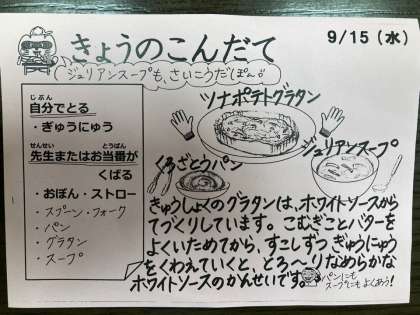 9/15(水)
きょうのこんだて
ジュリアンスープも、さいこうだぽん♪
じぶん
自分でとる
・ぎゅうにゅう
せんせい とうばん
先生またはお当番が
くばる
・おぼん・ストロー
・スプーン・フォーク
・パン
・グラタン
・スープ
ツナポテトグラタン
くろざとうパン
ジュリアンスープ
きゅうしょくのグラタンは、ホワイトソースから
てづくりしています。こむぎことバターを
よくいためてから、すこしずつ ぎゅうにゅう
をくわえていくと、とろ〜りなめらかな
ホワイトソースのかんせいです。
パンにも
スープにもよくあう!